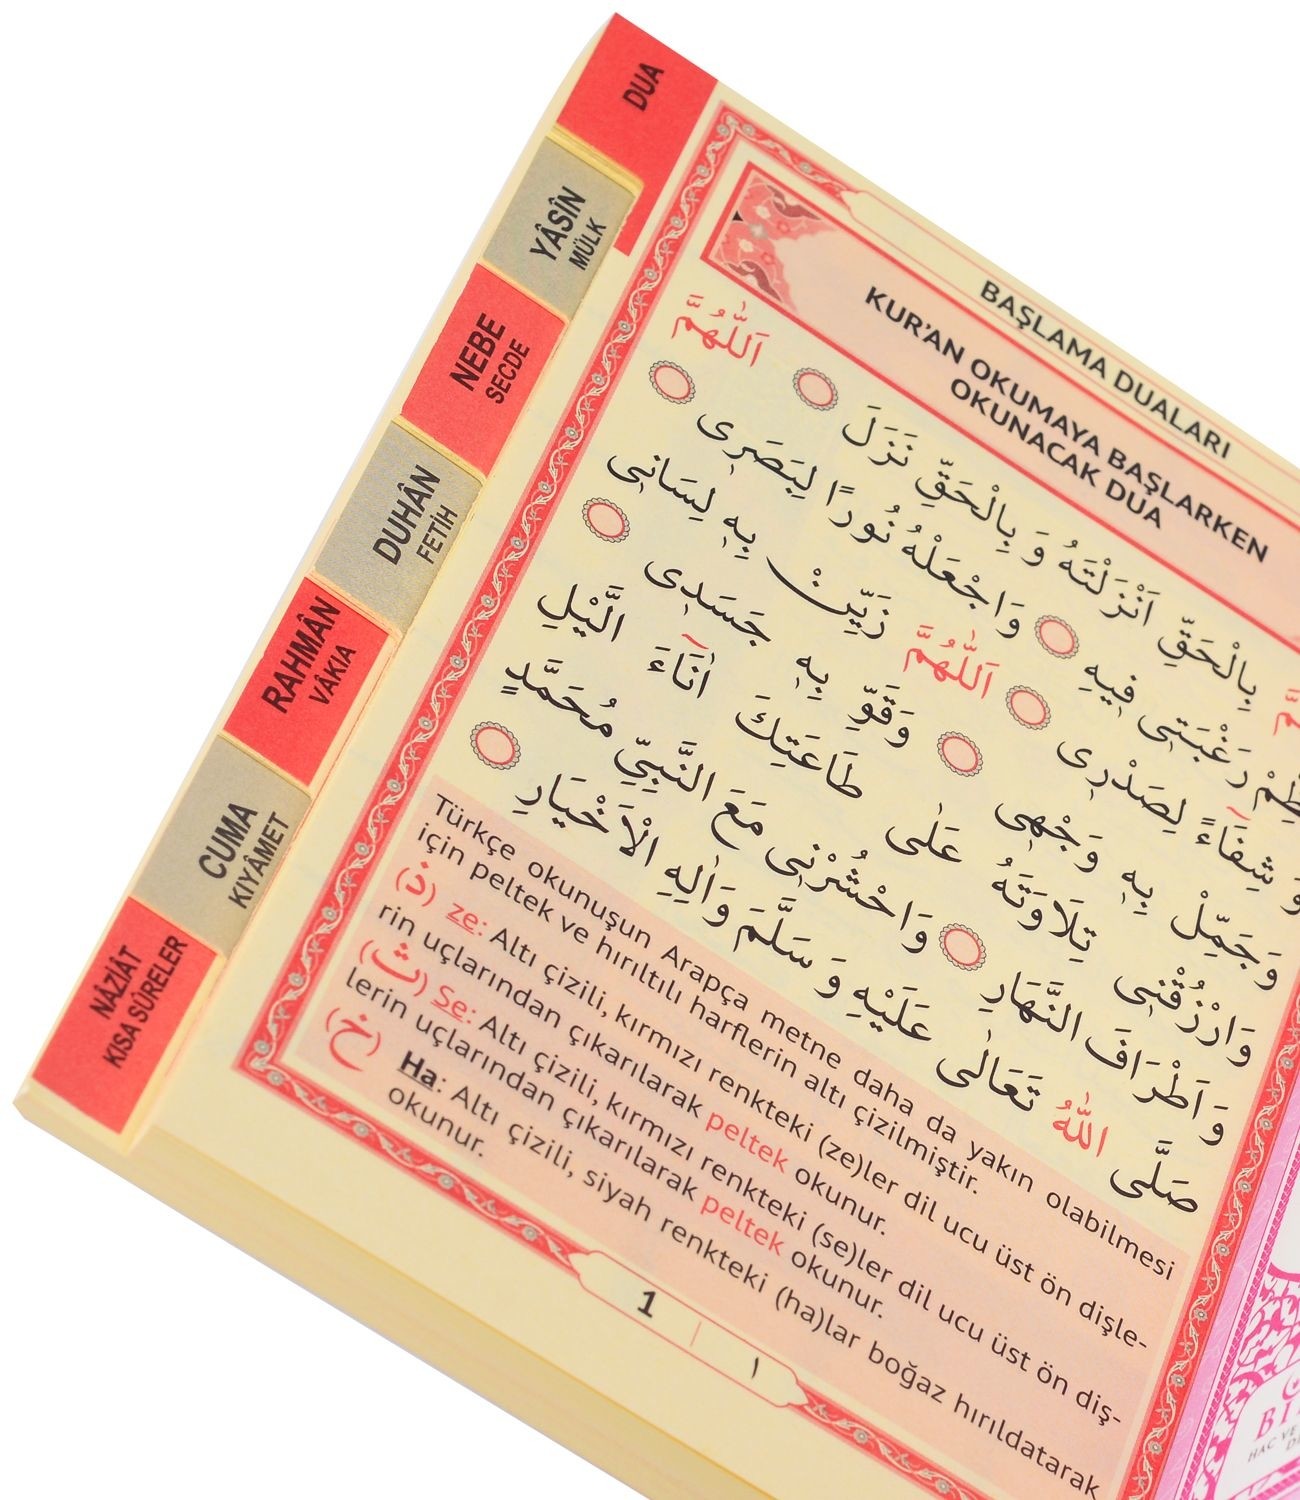 DUA
YÂSÎN
MÜLK
NEBE
SECDE
DUHÂN
FETİH
RAHMÂN
VÂKIA
CUMA
KIYÂMET
NÂZİÂT
KISA SÛRELER
BAŞLAMA DUALARI
KUR'AN OKUMAYA BAŞLARKEN
OKUNACAK DUA
بِالْحَقِّ اَنْزَلْتَهُ وَ بِالْحَقِّ نَزَلَ اَللّٰهُمَّ
رَغْبَتٖى فٖيهِ وَاجْعَلْهُ نُورًا لِبَصَرٖى
شِفَٓاءً لِصَدْرٖى اَللّٰهُمَّ زَيِّنْ بِهٖ لِسَانٖى
وَجَمِّلْ بِهٖ وَجْهٖى وَقَوِّ بِهٖ جَسَدٖى
وَارْزُقْنٖى تِلَاوَتَهُ عَلٰى طَاعَتِكَ اٰنَٓاءَ الَّيْلِ
وَاَطْرَافَ النَّهَارِ وَاحْشُرْنٖى مَعَ النَّبِيِّ مُحَمَّدٍ
صَلَّى اللّٰهُ تَعَالٰى عَلَيْهِ وَ سَلَّمَ وَاٰلِهِ الْاَخْيَارِ
Türkçe okunuşun Arapça metne daha da yakın olabilmesi
için peltek ve hırıltılı harflerin altı çizilmiştir.
(ذ) ze: Altı çizili, kırmızı renkteki (ze)ler dil ucu üst ön dişle-
rin uçlarından çıkarılarak peltek okunur.
(ث) Se: Altı çizili, kırmızı renkteki (se)ler dil ucu üst ön diş-
lerin uçlarından çıkarılarak peltek okunur.
(خ) Ha: Altı çizili, siyah renkteki (ha)lar boğaz hırıldatarak
okunur.
1 | ١